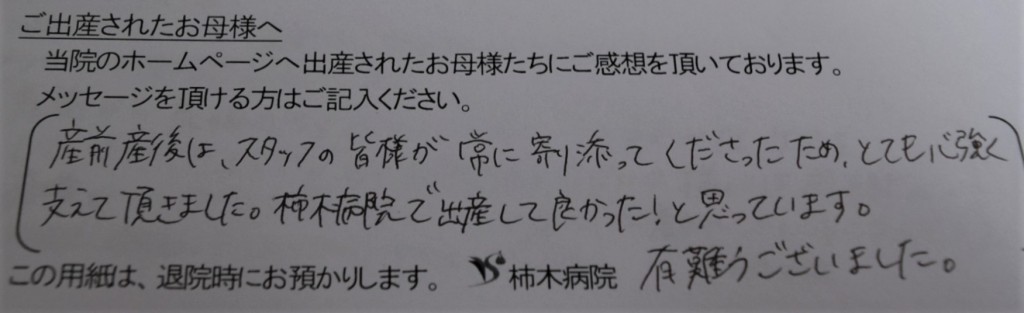 ご出産されたお母様へ
当院のホームページへ出産されたお母様たちにご感想を頂いております。
メッセージを頂ける方はご記入ください。
産前産後は、スタッフの皆様が常に寄り添ってくださったため、とても心強く
支えて頂きました。柿木病院で出産して良かった!と思っています。
有難うございました。
この用紙は、退院時にお預かりします。 柿木病院